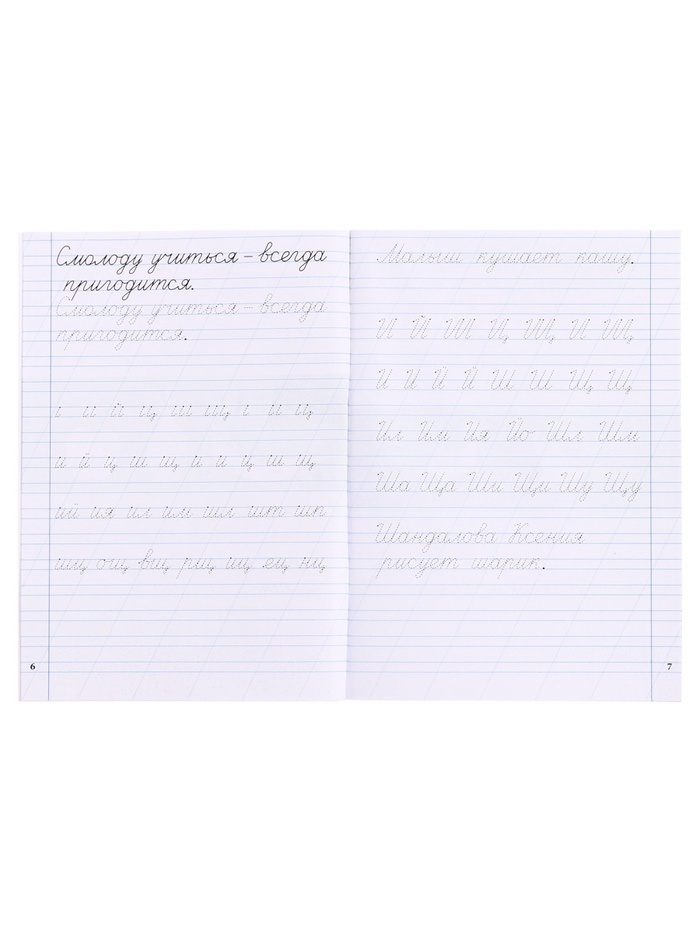 Смолоду учиться – всегда
пригодится.
Смолоду учиться – всегда
пригодится.
и й ц ш щ и ц
и й ц ш щ и и ц ш щ
ий ия ил им шл шт шп
щ ощ вщ рщ ищ ец нц
6
Малыш кушает кашу.
И Й Ш Ц Щ И Щ
И И Й Й Ш Ш Щ Щ
Ил Им Ия Йо Шл Шм
Ша Ща Ши Щи Шу Щу
Шандалова Ксения
рисует шарик.
7